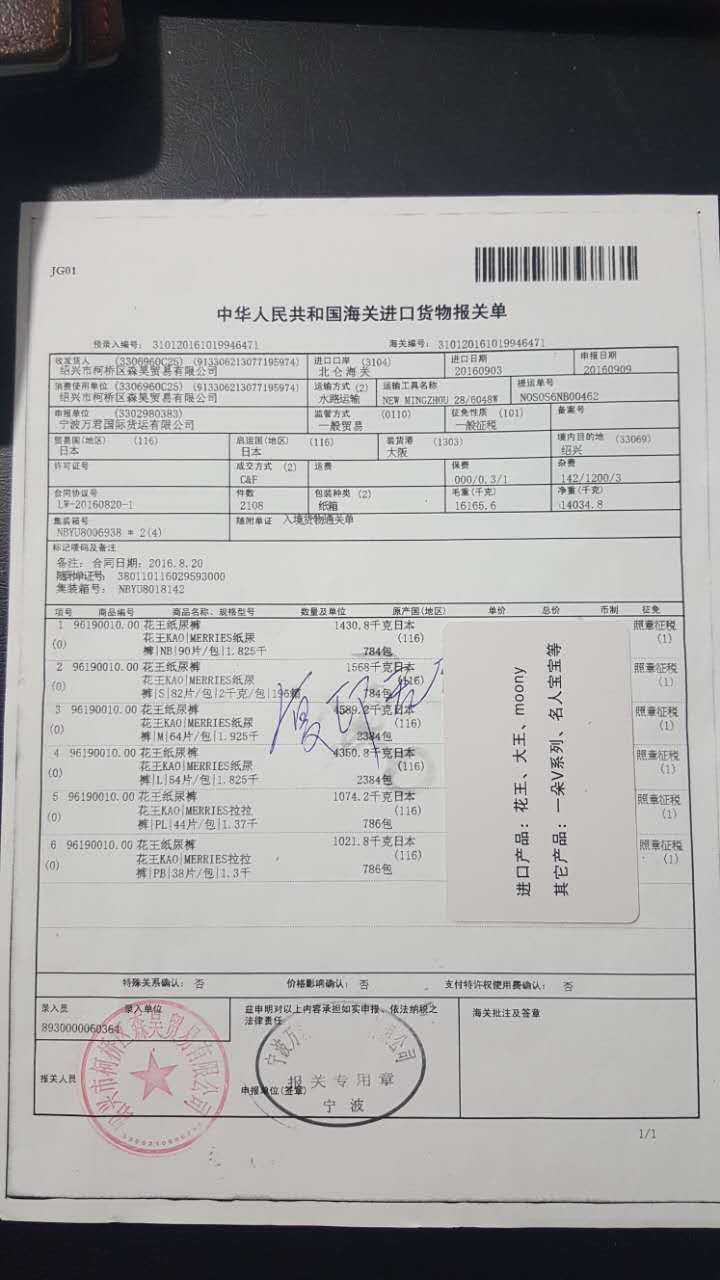 JG01
中华人民共和国海关进口货物报关单
预录入编号： 310120161019946471 海关编号： 310120161019946471
收发货人 (3306960C25) (913306213077195974) 进口口岸 (3104) 进口日期 申报日期
绍兴市柯桥区森昊贸易有限公司 北仑海关 20160903 20160909
消费使用单位 (3306960C25) (913306213077195974) 运输方式 (2) 运输工具名称 提运单号
绍兴市柯桥区森昊贸易有限公司 水路运输 NEW MINGZHOU 28/6048W NOSOS6NB00462
申报单位 (3302980383) 监管方式 (0110) 征免性质 (101) 备案号
宁波万君国际货运有限公司 一般贸易 一般征税
贸易国(地区) (116) 启运国(地区) (116) 装货港 (1303) 境内目的地 (33069)
日本 日本 大阪 绍兴
许可证号 成交方式 (2) 运费 保费 杂费
C&F 000/0.3/1 142/1200/3
合同协议号 件数 包装种类 (2) 毛重(千克) 净重(千克)
LW-20160820-1 2108 纸箱 16165.6 14034.8
集装箱号 随附单证 入境货物通关单
NBYU8006938 * 2(4)
标记唛码及备注
备注： 合同日期： 2016.8.20
随附单证号： 380110116029593000
集装箱号： NBYU8018142
项号 商品编号 商品名称、规格型号 数量及单位 原产国(地区) 单价 总价 币制 征免
1 96190010.00 花王纸尿裤 1430.8千克日本 照章征税
(0) 花王KAO|MERRIES纸尿 (116) (1)
裤|NB|90片/包|1.825千 784包
2 96190010.00 花王纸尿裤 1568千克日本 照章征税
(0) 花王KAO|MERRIES纸尿 (116) (1)
裤|S|82片/包|2千克/包|196箱 784包
3 96190010.00 花王纸尿裤 4589.2千克日本 照章征税
(0) 花王KAO|MERRIES纸尿 (116) (1)
裤|M|64片/包|1.925千 2384包
4 96190010.00 花王纸尿裤 4350.8千克日本 照章征税
(0) 花王KAO|MERRIES纸尿 (116) (1)
裤|L|54片/包|1.825千 2384包
5 96190010.00 花王纸尿裤 1074.2千克日本 照章征税
(0) 花王KAO|MERRIES拉拉 (116) (1)
裤|PL|44片/包|1.37千 786包
6 96190010.00 花王纸尿裤 1021.8千克日本 照章征税
(0) 花王KAO|MERRIES拉拉 (116) (1)
裤|PB|38片/包|1.3千 786包
复印无
进口产品：花王、大王、moony
其它产品：一朵V系列、名人宝宝等
特殊关系确认： 否 价格影响确认： 否 支付特许权使用费确认： 否
录入员 录入单位 兹申明对以上内容承担如实申报、依法纳税之 海关批注及签章
法律责任
8930000060364
报关人员 申报单位(签章)
绍兴市柯桥区森昊贸易有限公司
宁波万 公司
报关专用章
宁波
1/1